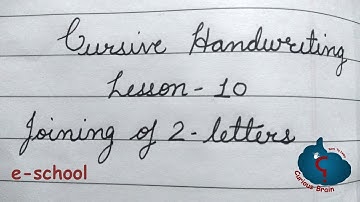 Cursive Handwriting
Lesson - 10
Joining of 2 - letters
e-school
Curious Brain